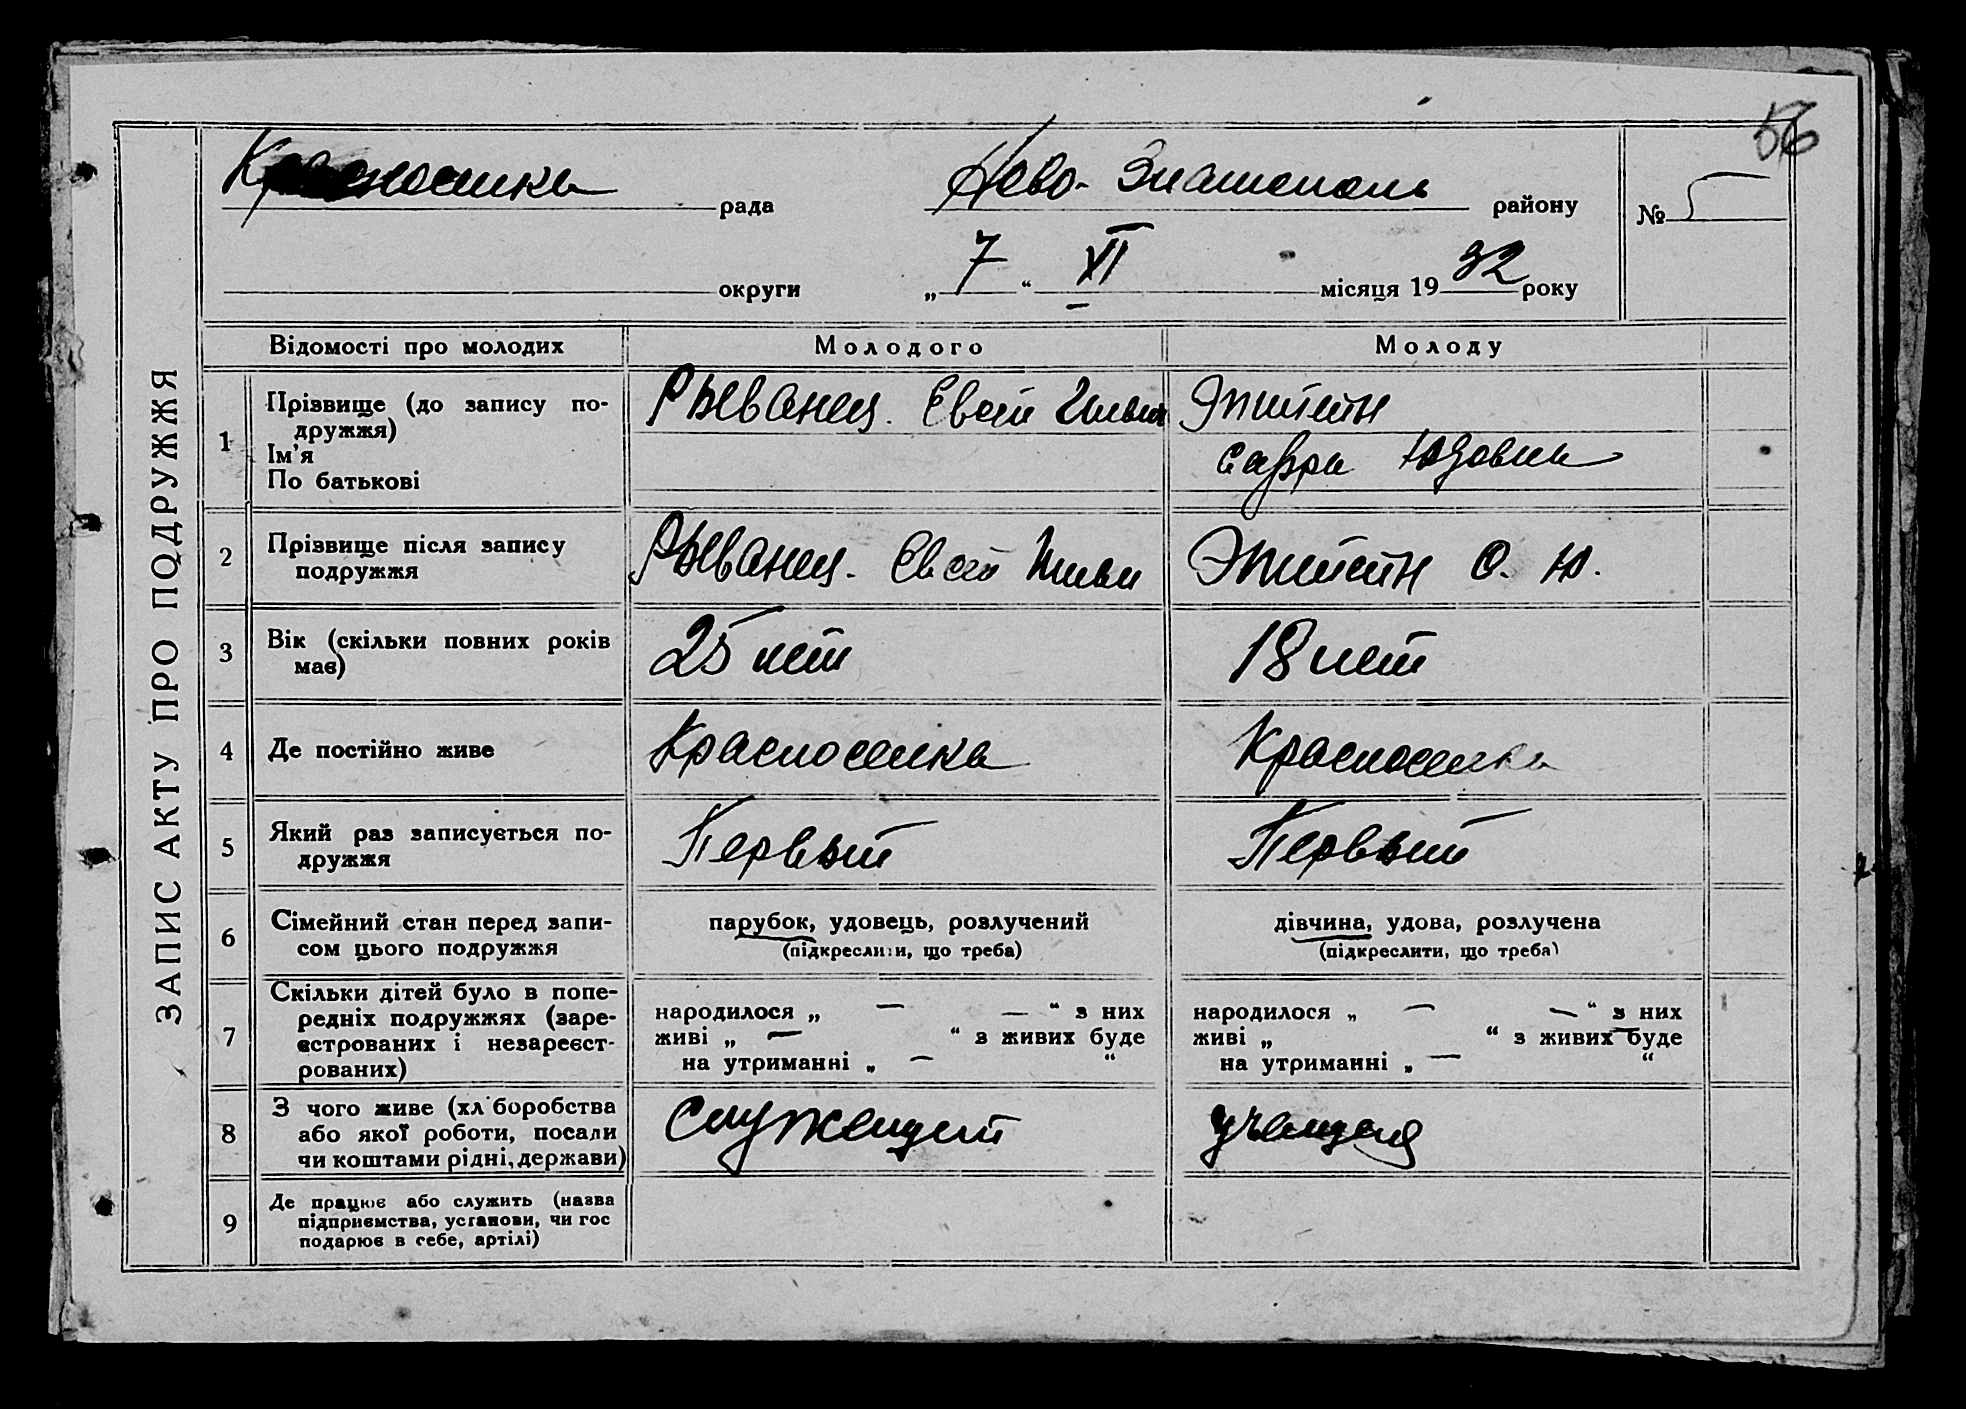 56
Красноселка рада
Ново-Златополь району
№ 5
округи
„ 7 “ XI місяця 1932 року
ЗАПИС АКТУ ПРО ПОДРУЖЖЯ
Відомості про молодих
Молодого
Молоду
1
Прізвище (до запису по-
дружжя)
Ім'я
По батькові
Рыванец. Евсей
Эпштейн
Сарра Юдовна
2
Прізвище після запису
подружжя
Рыванец. Евсей
Эпштейн С. Ю.
3
Вік (скільки повних років
має)
25 лет
18 лет
4
Де постійно живе
Красноселка
Красноселка
5
Який раз записується по-
дружжя
Первый
Первый
6
Сімейний стан перед запи-
сом цього подружжя
парубок, удовець, розлучений
(підкреслити, що треба)
дівчина, удова, розлучена
(підкреслити, що треба)
7
Скільки дітей було в попе-
редніх подружжях (заре-
єстрованих і незареєст-
рованих)
народилося „ — — “ з них
живі „ — “ з живих буде
на утриманні „ — “
народилося „ — — “ з них
живі „ “ з живих буде
на утриманні „ — “
8
З чого живе (хліборобства
або якої роботи, посади
чи коштами рідні, держави)
Служащий
учащаяся
9
Де працює або служить (назва
підприємства, установи, чи гос
подарює в себе, артілі)